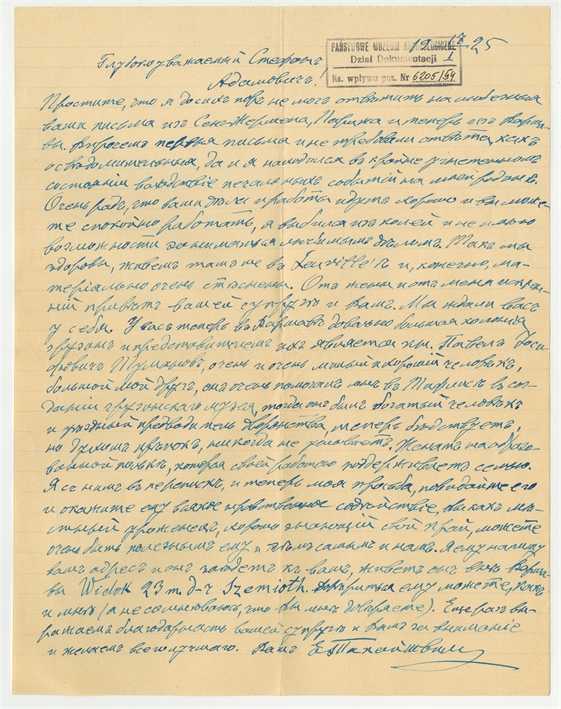 19 17/I 25
PAŃSTWOWE MUZEUM ARCHEOLOGICZNE
Dział Dokumentacji
Ks. wpływu poz. Nr 6205/64
Глубокоуважаемый Стефанъ
Адамовичъ!
Простите, что я до сихъ поръ не могъ отвѣтить на любезныя
ваши письма изъ Сенъ-Жермена, Парижа и теперь изъ Варша-
вы. Впрочемъ первыя письма и не требовали отвѣта, какъ
освѣдомительныя, да и я находился въ крайне угнетенномъ
состояніи вслѣдствіе печальныхъ событій на моей родинѣ.
Очень радъ, что ваши дѣла и работа идутъ хорошо и вы може-
те спокойно работать, я выбился изъ колеи и не имѣю
возможности заниматься любимымъ дѣломъ. Такъ мы
здоровы, живемъ тамъ же въ Leuville'ѣ и, конечно, ма-
теріально очень стѣснены. Отъ жены и отъ меня искрен-
ній привѣтъ вашей супругѣ и Вамъ. Мы ждали васъ
у себя. У васъ теперь въ Варшавѣ довольно большая колонія
грузинъ и представителемъ ихъ является кн. Павелъ Іоси-
фовичъ Тумановъ, очень и очень милый и хорошій человѣкъ,
большой мой другъ, онъ очень помогалъ мнѣ въ Тифлисѣ въ соз-
даніи грузинскаго музея, тогда онъ былъ богатый человѣкъ
и уѣздный предводитель Дворянства, теперь бѣдствуетъ,
но духомъ крѣпокъ, никогда не унываетъ. Женатъ на образо-
ванной полькѣ, которая своей работою поддерживаетъ семью.
Я съ нимъ въ перепискѣ, и теперь моя просьба, повидайте его
и окажите ему всякое нравственное содѣйствіе, вы какъ мѣ-
стный уроженецъ, хорошо знающій свой край, можете
очень быть полезнымъ ему и тѣмъ самымъ и намъ. Я ему напишу
вашъ адресъ и онъ зайдетъ къ вамъ, живетъ онъ
вы Widok 23 m d-r Szemioth. Довѣриться ему можете, какъ
и мнѣ (а не сомнѣваюсь, что вы мнѣ довѣряете). Еще разъ вы-
ражаемъ благодарность вашей супругѣ и Вамъ за вниманіе
и желаемъ всего лучшаго. Вашъ Е Такайшвили